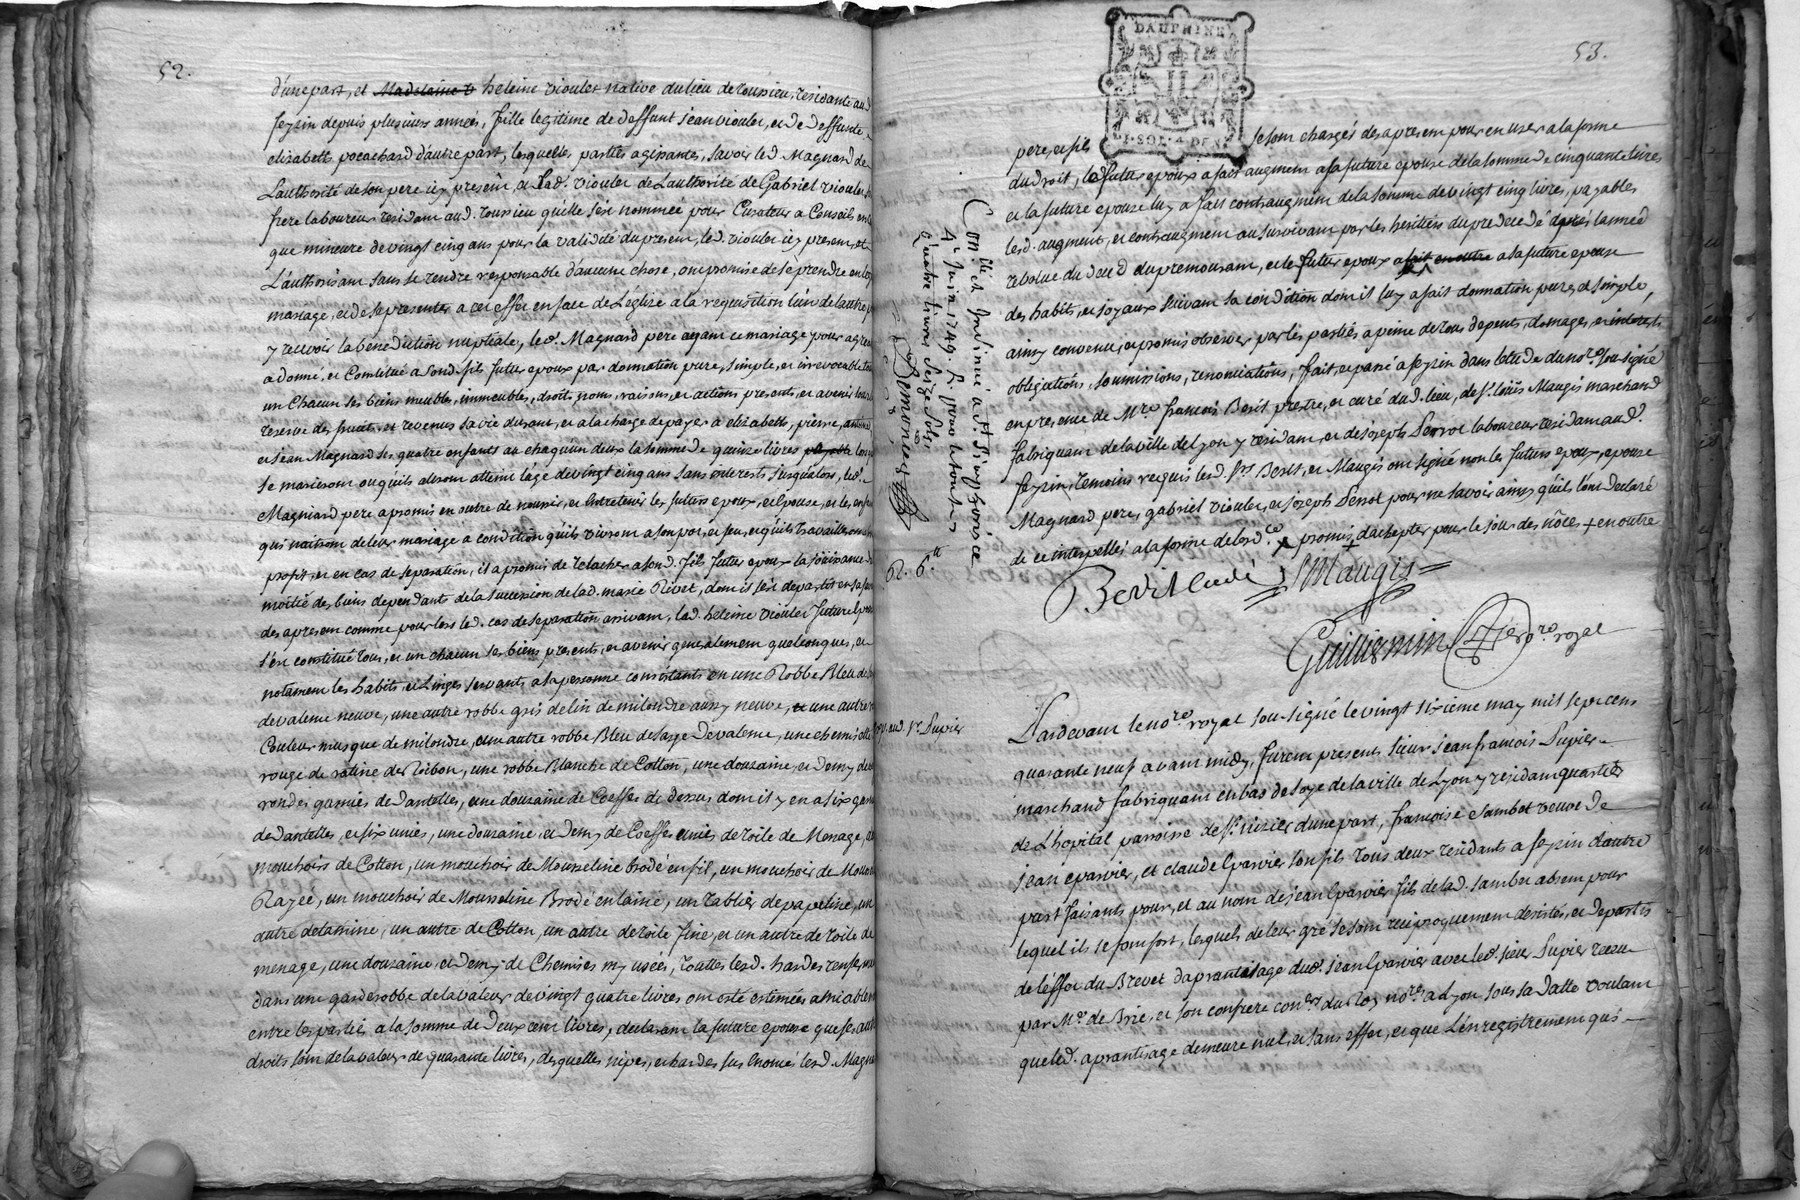 52.
d'une part, et Madelaine v heleine viouler native du lieu de toussieu, residante aud
feyzin depuis plusieurs années, fille legitime de deffunt jean viouler, et de deffunte
elizabeth pocachard d'autre part, lesquelles parties agissantes, savoir led. Magnard de
L'authorité de son pere icy present, et lad. viouler de L'authorité de Gabriel viouler, s
frere laboureur residant aud. toussieu qu'elle s'est nommée pour Curateur a Conseils en
que mineure de vingt cinq ans pour la validité du present, led. viouler icy present, et
L'authorisant sans se rendre responsable d'aucune chose, ont promis de se prendre en
mariage, et de se presenter a cet effet en face de L'église a la requisition l'un de l'autre p
y recevoir la benediction nuptiale, led. Magnard pere ayant ce mariage pour agrea
a donné, et Constitué a sond. fils futur epoux par donnation pure, simple, et irrevocable tous
un Chacun ses biens meubles, immeubles, droits, noms, raisons, et actions presents, et avenir sous
reserve des fruits et revenus sa vie durant, et a la charge de payer a elizabeth, pierre, antoine
et jean Magnard ses quatre enfants a chaqu'un deux la somme de quinze livres payable lors
se marieront ou qu'ils auront atteint l'age de vingt cinq ans sans interests jusqu'alors, led.
Magniard pere a promis en outre de nourrir, et entretenir les futurs epoux, et Epouse, et les enf
qui naitront de leur mariage a condition qu'ils vivront a son pot, et feu, et qu'ils travailleront a
profit, et en cas de separation, il a promis de relacher a sond. fils futur epoux la jouissance d
moitié des biens dependants de la succession de lad. marie Rivet, dont il s'est departit en sa fav
des apresent comme pour lors led. cas de separation arrivant, lad. heleine viouler future Epou
s'en constitué tous, et un chacun ses biens presents, et avenir generalement quelconques, et
notament les habits, et Linges servants a sa personne consistants en une Robbe Bleu de
de valence neuve, une autre robbe gris de lin de milondre aussy neuve, et une autre
Couleur musque de milondre, une autre robbe Bleu de sarge de valence, une chemisette
rouge de ratine de Ribon, une robbe Blanche de Cotton, une douzaine, et demy de
rondes garnies de dantelles, une douzaine de Coeffes de dessus dont il y en a six garn
de dantelles, et six unies, une douzaine, et demy de Coeffes unies de toile de Menage,
mouchoirs de Cotton, un mouchoir de Mousseline brodé en fil, un mouchoir de Mouss
Rayée, un mouchoir de Mousseline Brodé en laine, un tablier de papeline, un
autre detamine, un autre de Cotton, un autre de toile fine, et un autre de toile de
menage, une douzaine, et demy de Chemises my usées, Touttes lesd. hardes renfermées
dans une garderobbe de la valeur de vingt quatre livres ont esté estimées amiablem
entre les parties a la somme de deux cent livres, declarant la future epouse que ses au
droits sont de la valeur de quarante livres, desquelles nipes, et hardes sus Enoncé lesd. Magna
53.
DAUPHINE
II
SOL. 4 DEN
pere, et fils se sont chargés des apresent pour en user a la forme
du droit, led. futur epoux a fait augment a la future epouse de la somme de cinquante livres
et la future epouse luy a fait contraugment de la somme de vingt cinq livres, payables
lesd. augment, et contraugment au survivant par les heritiers du predecedé apres l'année
revolue du deced du premourant, et le futur epoux a fait en outre a la future epouse
des habits, et joyaux suivant sa condition dont il luy a fait donnation pure, et simple,
ainsy convenu, et promis observer par les parties a peine de tous depents, domages, et interests
obligations, soumissions, renonciations, fait, et passé a feyzin dans l'etude du no.re sousigné
en presence de M.re francois Berit prestre, et curé dud. lieu, de s.r loüis Maugis marchand
fabriquant de la ville de Lyon y residant, et de joseph Perrot laboureur residant aud.
feyzin, temoins requis lesd. s.rs Berit, et Maugis ont signé non les futurs epoux, epouse
Magnard pere, gabriel viouler, et joseph Perrot pour ne savoir ainsy qu'ils l'ont declaré
de ce interpellé a la forme de lord.ce promis d'achepter pour le jour des nôces + en outre
Berit Curé Maugis
Guilliermin no.re royal
Con.lle et Insinué a St. Simphorien ce
4.e Juin 1749. R.
Quatre livres Seize Sols,
R. 6.tt
aud. s.r Pupier
Pardevant le no.re royal sousigné le vingt sixieme may mil sept cens
quarante neuf avant midy, furent presents sieur jean francois Pupier
marchand fabriquant en bas de soye de la ville de Lyon y residant quartier
de L'hopital parroisse de s.t nizier d'une part, francoise Sambet veuve de
jean Eparvier, et claude Eparvier son fils tous deux residants a feyzin d'autre
part faisants pour, et au nom de jean Eparvier fils de lad. sambet absent pour
lequel ils se font fort, lesquels de leur gré se sont reciproquement desistés, et departis
de l'effet du Brevet daprantissage dud. jean Eparvier avec led. sieur Pupier receu
par M.e de Brie, et son confrere con.ers du Roy no.res a Lyon sous sa datte voulant
que led. aprantissage demeure nul, et sans effet, et que L'enregistrement qui